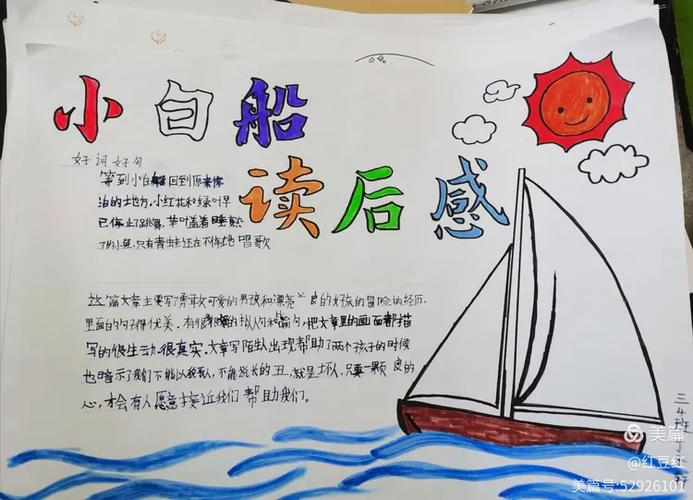 小白船
读后感
好词好句
等到小白船回到原来停
泊的地方,小红花和绿叶早
已停止了跳舞,草叶盖着睡熟
了的小鱼,只有青蛙还在不停地唱歌
这篇文章主要写了勇敢可爱的男孩和漂亮 良的女孩的冒险的经历,
里面的句子很优美.有很 的拟人句和 句,把文章里的画面都描
写的很生动,很真实.文章写陌 人出现帮助了两个孩子的时候
也暗示了我们不能以貌 人,不能 长的丑,就是坏人,只要一颗 良的
心,才会有人愿意接近我们帮助我们.
三4班
美篇
@红豆红
美篇号:52926101